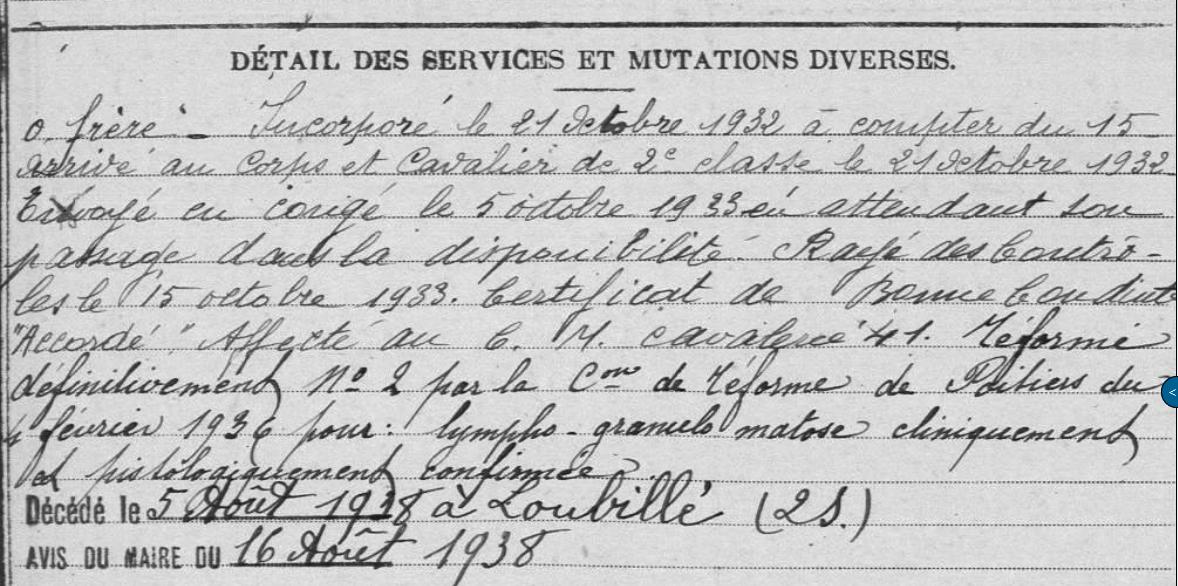 DÉTAIL DES SERVICES ET MUTATIONS DIVERSES.
o frère - Incorporé le 21 Octobre 1932 à compter du 15
arrivé au Corps et Cavalier de 2e classe le 21 Octobre 1932
Envoyé en congé le 5 octobre 1933 en attendant son
passage dans la disponibilité. Rayé des Contrô-
les le 15 octobre 1933. Certificat de Bonne Conduite
"Accordé" Affecté au C. M. cavalerie 41. Réformé
définitivement No 2 par la Com de Réforme de Poitiers du
février 1936 pour : lympho-granulo matose cliniquement
et histologiquement confirmée
Décédé le 5 Août 1938 à Loubillé (2S.)
AVIS DU MAIRE DU 16 Août 1938